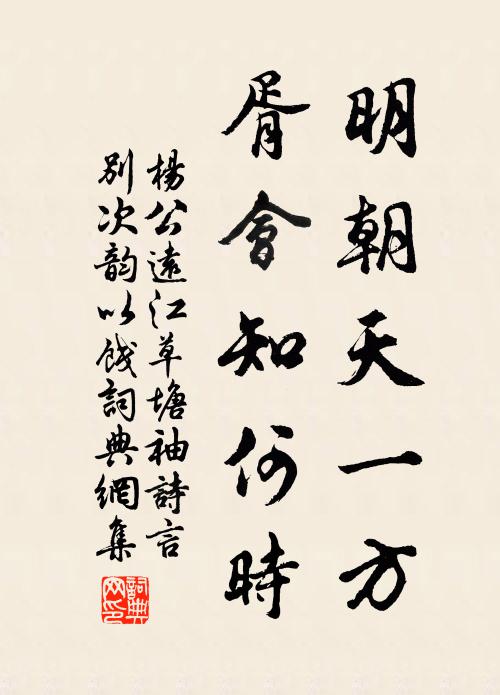 明朝天一方
胥會知何時
楊公遠江草塘袖詩言
別次韵以餞詞典網集
詞典網印